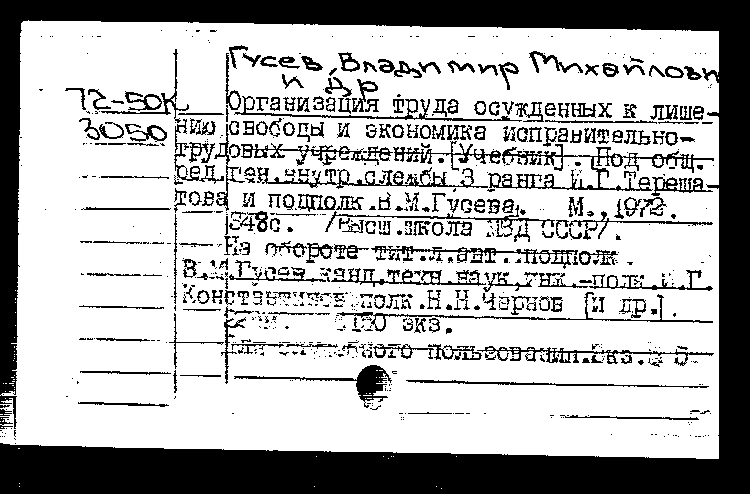 Гусев, Владимир Михайлович
и др
72-50К
3050
Организация труда осужденных к лише-
нию свободы и экономика исправительно-
трудовых учреждений. [Учебник]. Под общ.
ред. ген. внутр. службы 3 ранга И.Г. Тереша-
това и подполк. В.М. Гусева. М., 1972.
348с. /Высш. школа МВД СССР/.
На обороте тит. л. авт.: подполк.
В.М. Гусев, канд. техн. наук, инж.-полк. И.Г.
Константинов полк. Н.Н. Чернов [и др.].
экз.
Для служебного пользования. Экз.